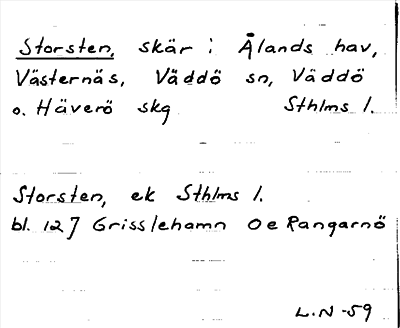 Storsten, skär i Ålands hav,
Västernäs, Väddö sn, Väddö
o. Häverö skg Sthlms l.
Storsten, ek Sthlms l.
bl. 127 Grisslehamn Oe Rangarnö
L.N -59